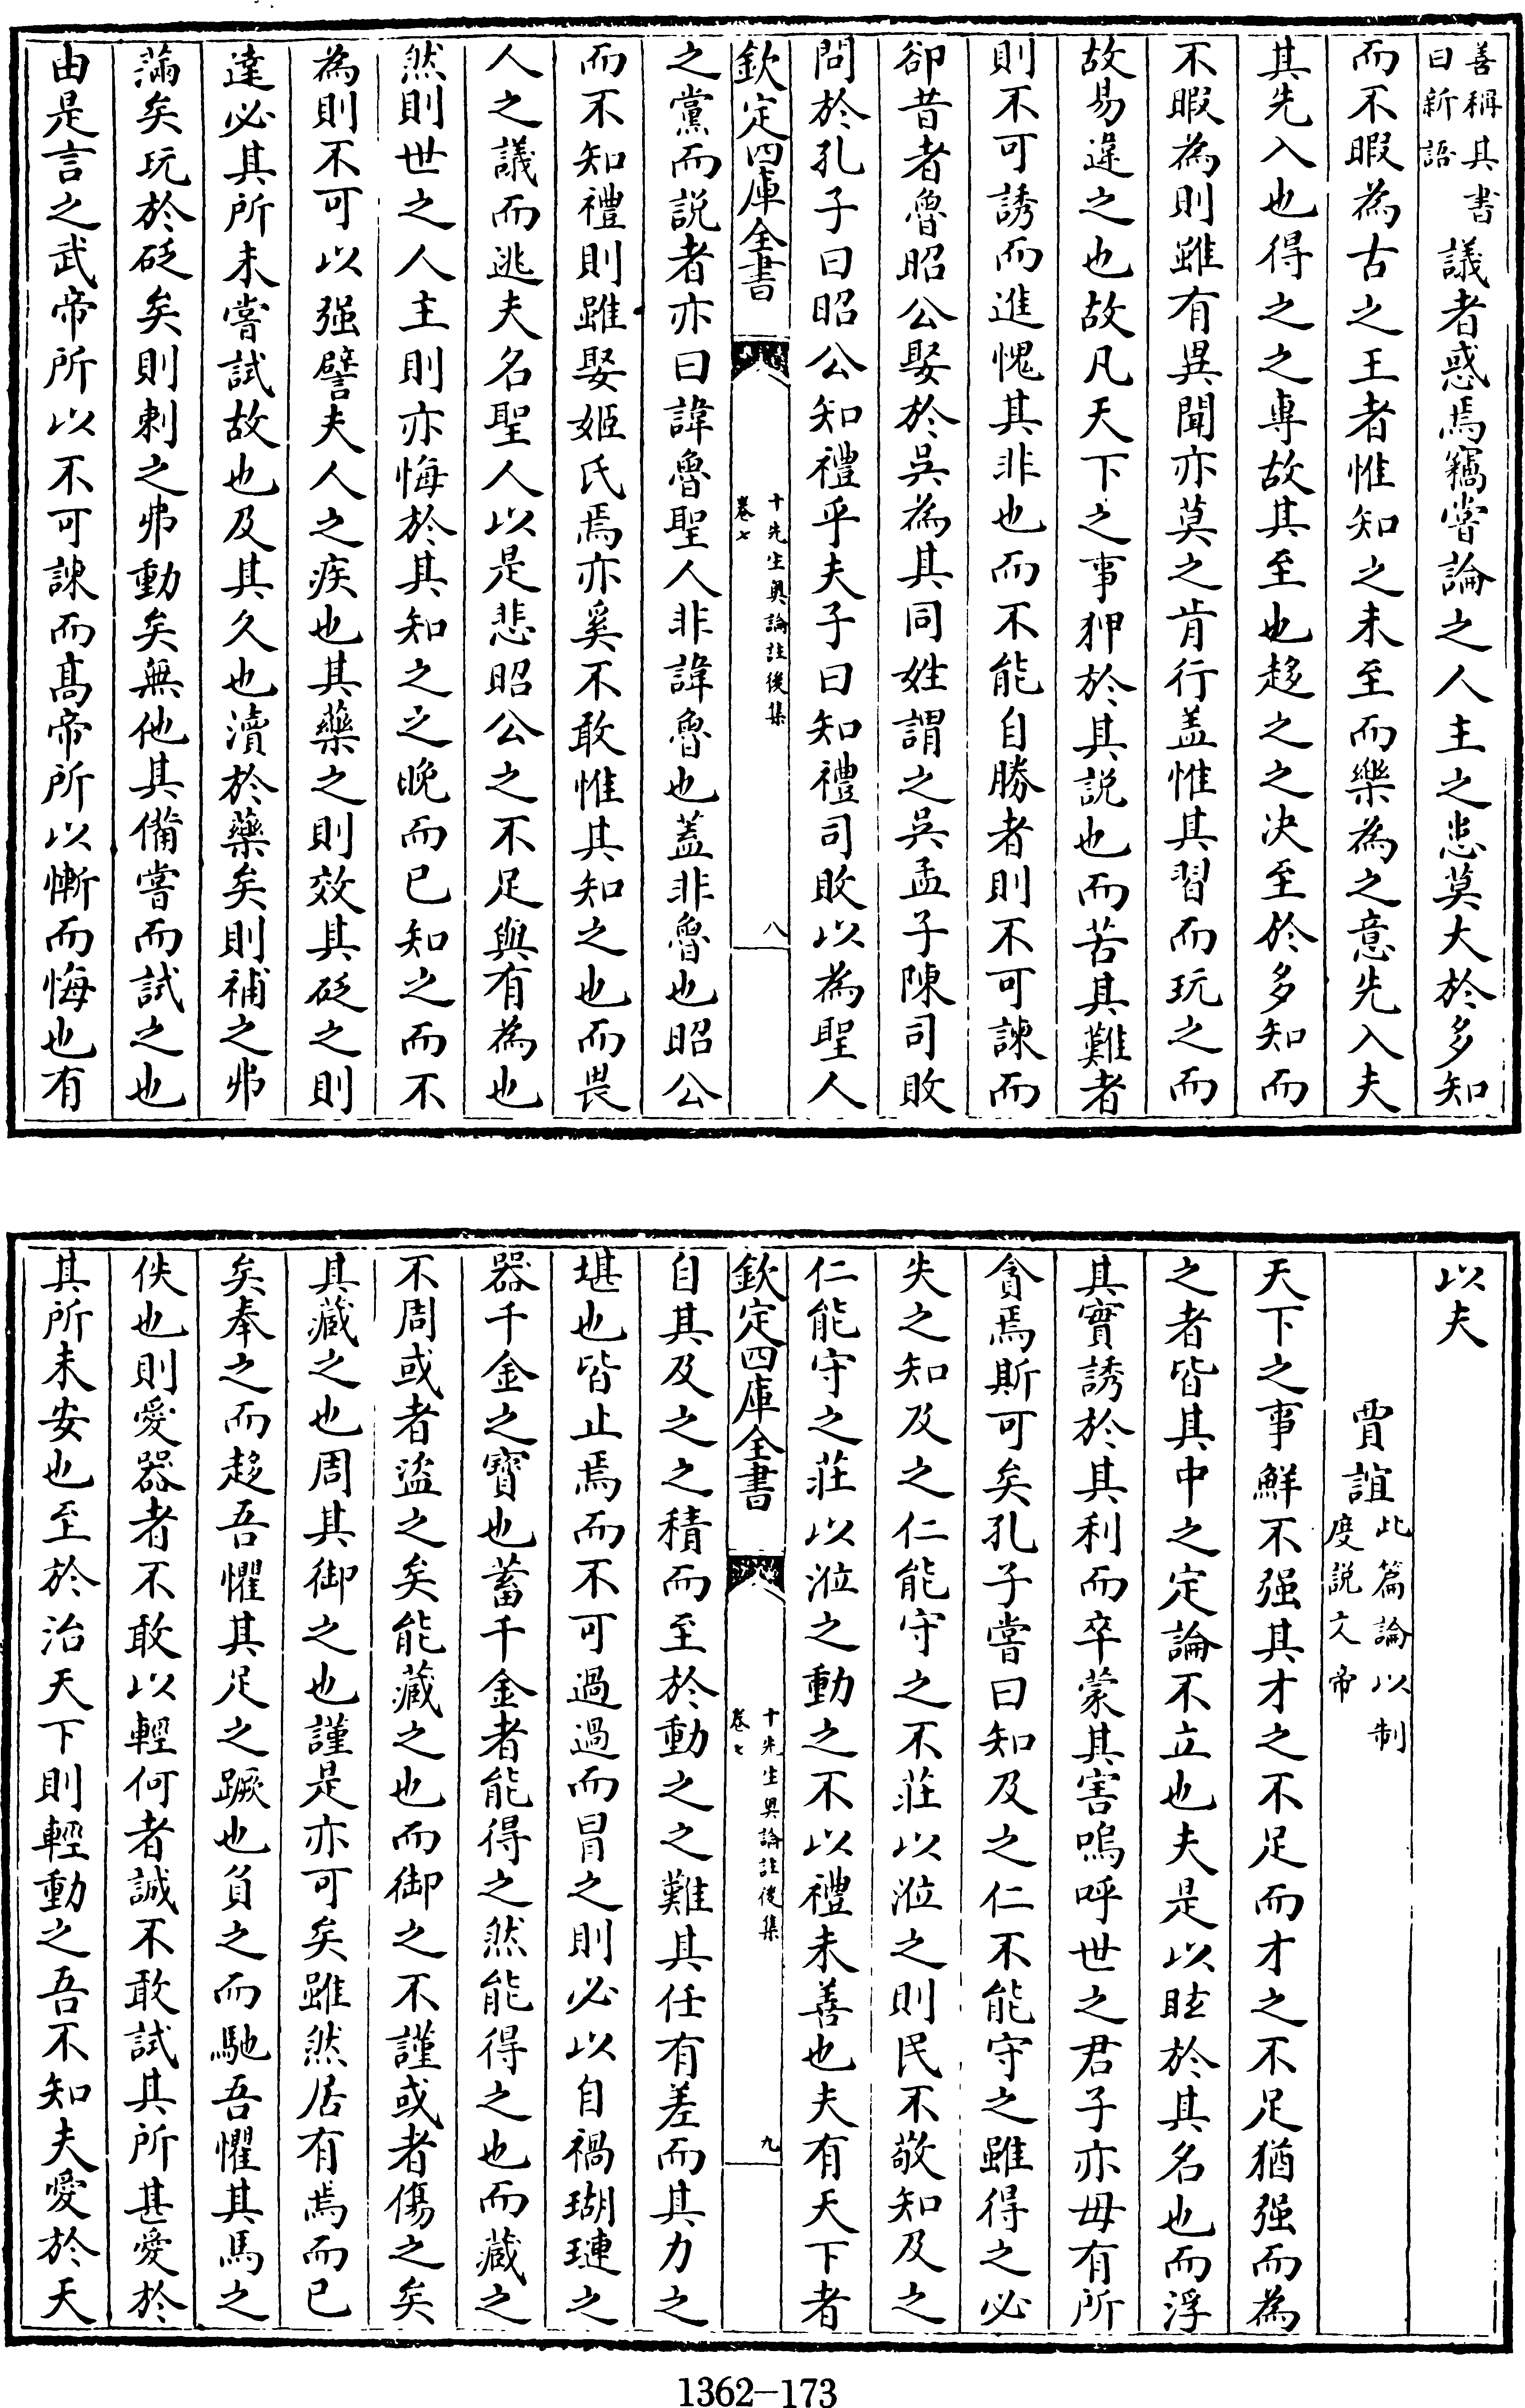 善稱其書
曰新語
議者惑焉竊嘗論之人主之患莫大於多知
而不暇為古之王者惟知之未至而樂為之意先入夫
其先入也得之之專故其至也趍之之决至於多知而
不暇為則雖有異聞亦莫之肯行盖惟其習而玩之而
故易違之也故凡天下之事狎於其説也而苦其難者
則不可誘而進愧其非也而不能自勝者則不可諫而
卻昔者魯昭公娶於吳為其同姓謂之吳孟子陳司敗
問於孔子曰昭公知禮乎夫子曰知禮司敗以為聖人
欽定四庫全書
十先生奥論註後集
卷七
八
之黨而説者亦曰諱魯聖人非諱魯也蓋非魯也昭公
而不知禮則雖娶姬氏焉亦奚不敢惟其知之也而畏
人之議而逃夫名聖人以是悲昭公之不足與有為也
然則世之人主則亦悔於其知之之晚而已知之而不
為則不可以强譬夫人之疾也其藥之則效其砭之則
達必其所未嘗試故也及其久也瀆於藥矣則補之弗
滿矣玩於砭矣則刺之弗動矣無他其備嘗而試之也
由是言之武帝所以不可諫而髙帝所以慚而悔也有
以夫
賈誼
此篇論以制
度説文帝
天下之事鮮不强其才之不足而才之不足猶强而為
之者皆其中之定論不立也夫是以眩於其名也而浮
其實誘於其利而卒蒙其害嗚呼世之君子亦毋有所
貪焉斯可矣孔子嘗曰知及之仁不能守之雖得之必
失之知及之仁能守之不莊以涖之則民不敬知及之
仁能守之莊以涖之動之不以禮未善也夫有天下者
欽定四庫全書
十先生奥論註後集
卷七
九
自其及之之積而至於動之之難其任有差而其力之
堪也皆止焉而不可過過而冒之則必以自禍瑚璉之
器千金之寳也蓄千金者能得之然能得之也而藏之
不周或者盜之矣能藏之也而御之不謹或者傷之矣
其藏之也周其御之也謹是亦可矣雖然居有焉而已
矣奉之而趍吾懼其足之蹶也負之而馳吾懼其馬之
佚也則愛器者不敢以輕何者誠不敢試其所甚愛於
其所未安也至於治天下則輕動之吾不知夫愛於天
1362-173